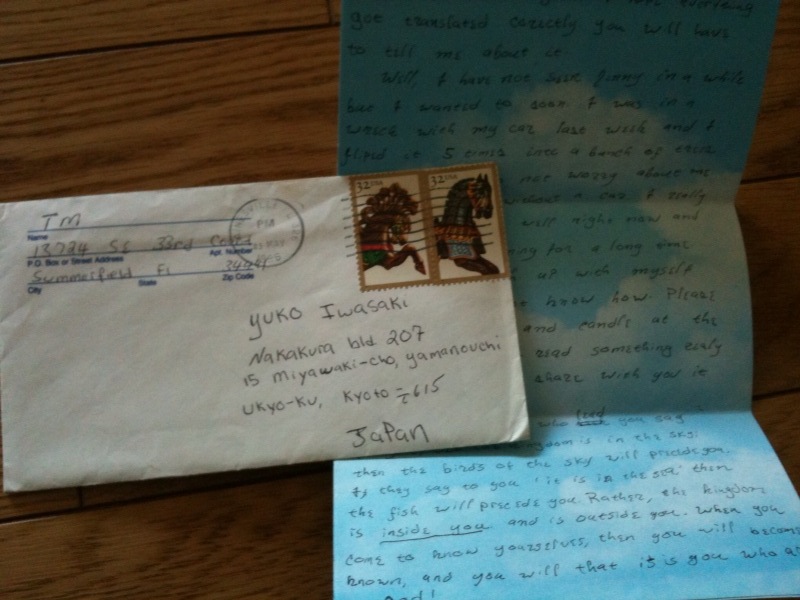 TM
Name
13724 SE 33rd Court
P.O. Box or Street Address
Apt. Number
Summerfield Fl
City
State
Zip Code
PM
MAY
32 USA
32 USA
Yuko Iwasaki
Nakakura bld 207
15 Miyawaki-cho, yamanouchi
Ukyo-ku, Kyoto 〒615
Japan
everything
got translated corectly you will have
to tell me about it
Well, I have not seen Jinny in a while
but I wanted to soon. I was in a
wreck with my car last week and I
fliped it 5 times into a bunch of trees
not worry about me
without a car. I really
will right now and
for a long time
up with myself
know how. Please
and candle at the
read something realy
share with you it
who you say
is in the sky:
then the birds of the sky will precide you.
If they say to you 'it is in the sea' then
the fish will precede you. Rather, the kingdom
is inside you and is outside you. When you
come to know yourselfs, then you will become
known, and you will that it is you who